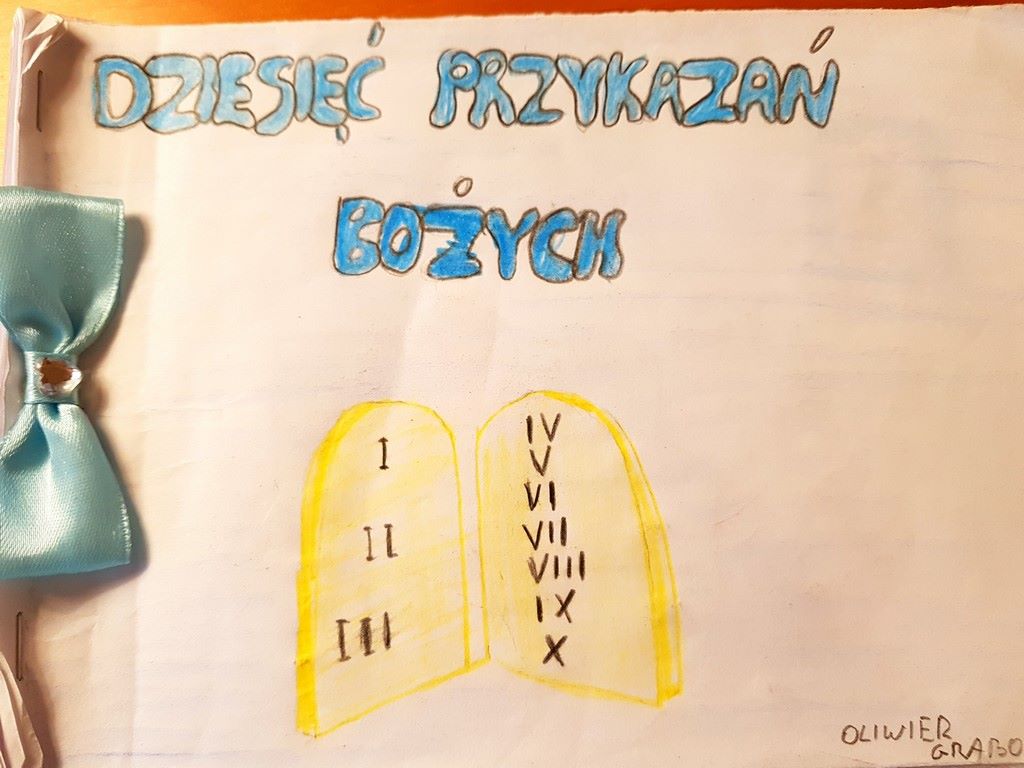 DZIESIĘĆ PRZYKAZAŃ
BOŻYCH
I
II
III
IV
V
VI
VII
VIII
IX
X
OLIWIER